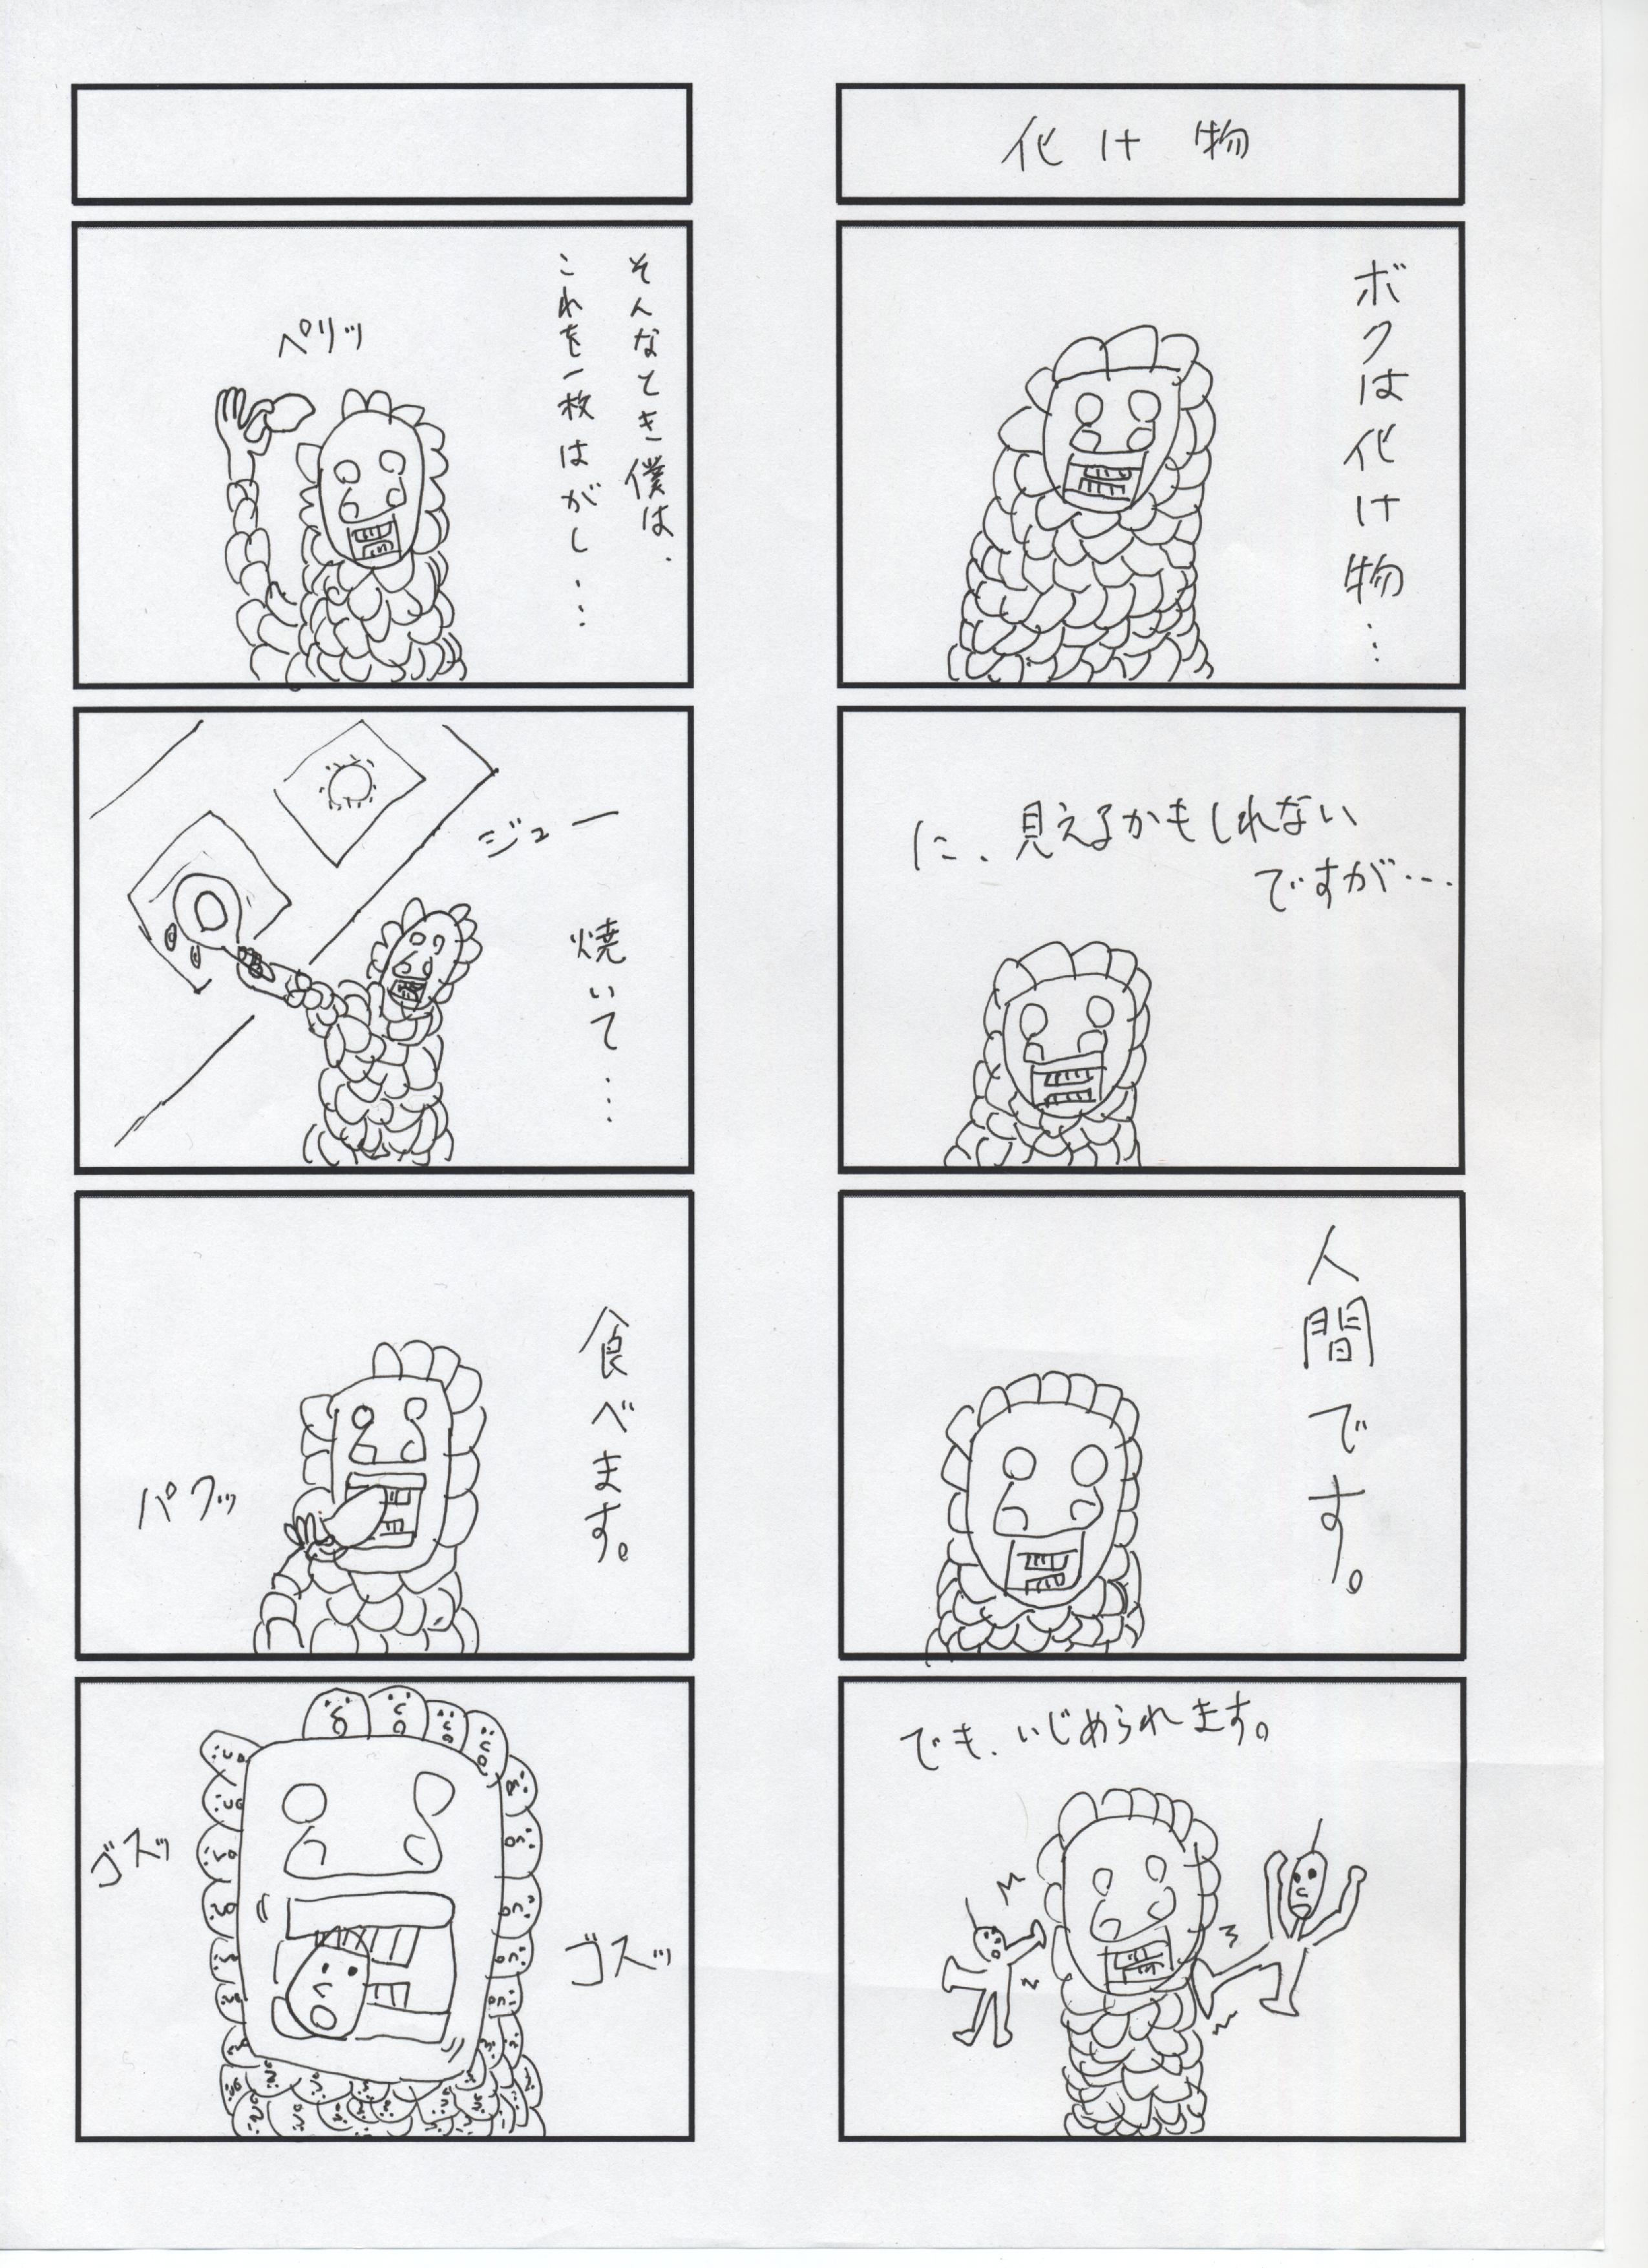 化け物
ボクは化け物…
に、見えるかもしれない
ですが…
人間です。
でも、いじめられます。
そんなとき僕は、
これを一枚はがし…
ペリッ
ジュー
焼いて…
食べます。
パクッ
ゴスッ
ゴスッ